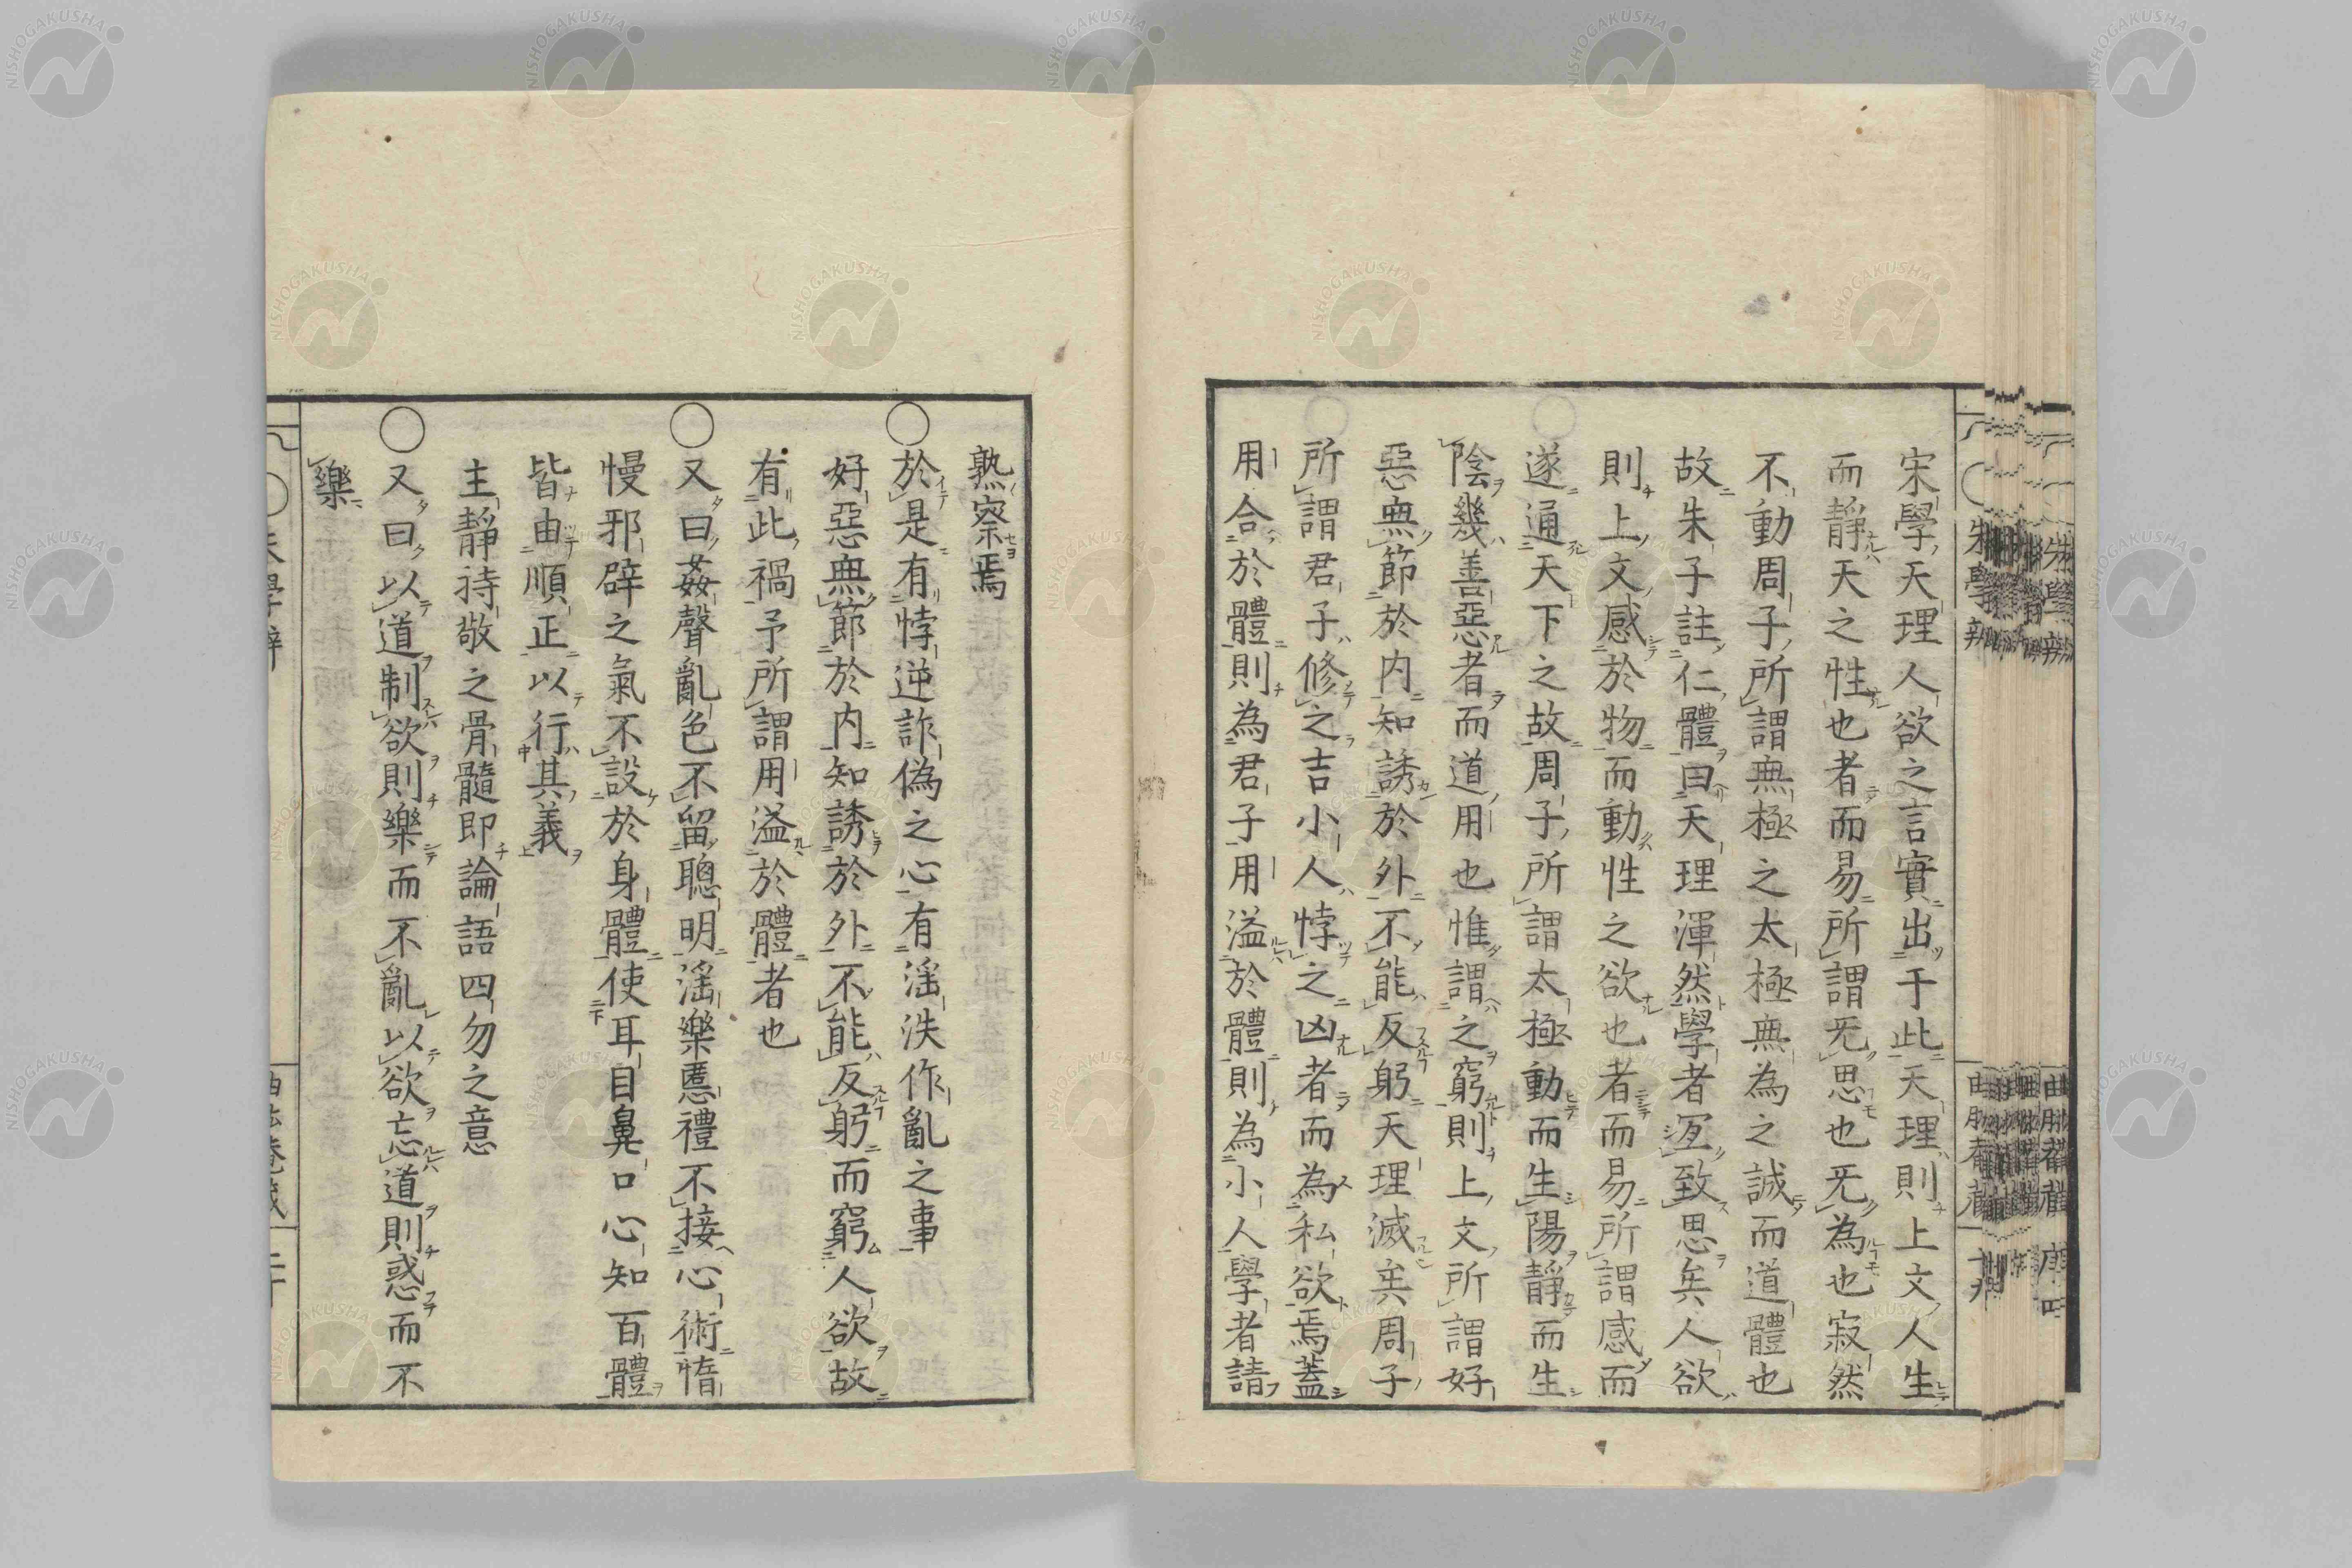 宋學天理人欲之言實出于此天理則上文人生
而靜天之性也者而易所謂无思也无為也寂然
不動周子所謂無極之太極無為之誠而道體也
故朱子註仁體曰天理渾然學者宜致思矣人欲
則上文感於物而動性之欲也者而易所謂感而
遂通天下之故周子所謂太極動而生陽靜而生
陰幾善惡者而道用也惟謂之窮則上文所謂好
惡無節於内知誘於外不能反躬天理滅矣周子
所謂君子修之吉小人悖之凶者而為私欲焉蓋
用合於體則為君子用溢於體則為小人學者請
熟察焉
○於是有悖逆詐偽之心有淫泆作亂之事
好惡無節於内知誘於外不能反躬而窮人欲故
有此禍予所謂用溢於體者也
○又曰姦聲亂色不留聰明淫樂慝禮不接心術惰
慢邪辟之氣不設於身體使耳目鼻口心知百體
皆由順正以行其義
主靜持敬之骨髓即論語四勿之意
○又曰以道制欲則樂而不亂以欲忘道則惑而不
樂
NISHOGAKUSHA